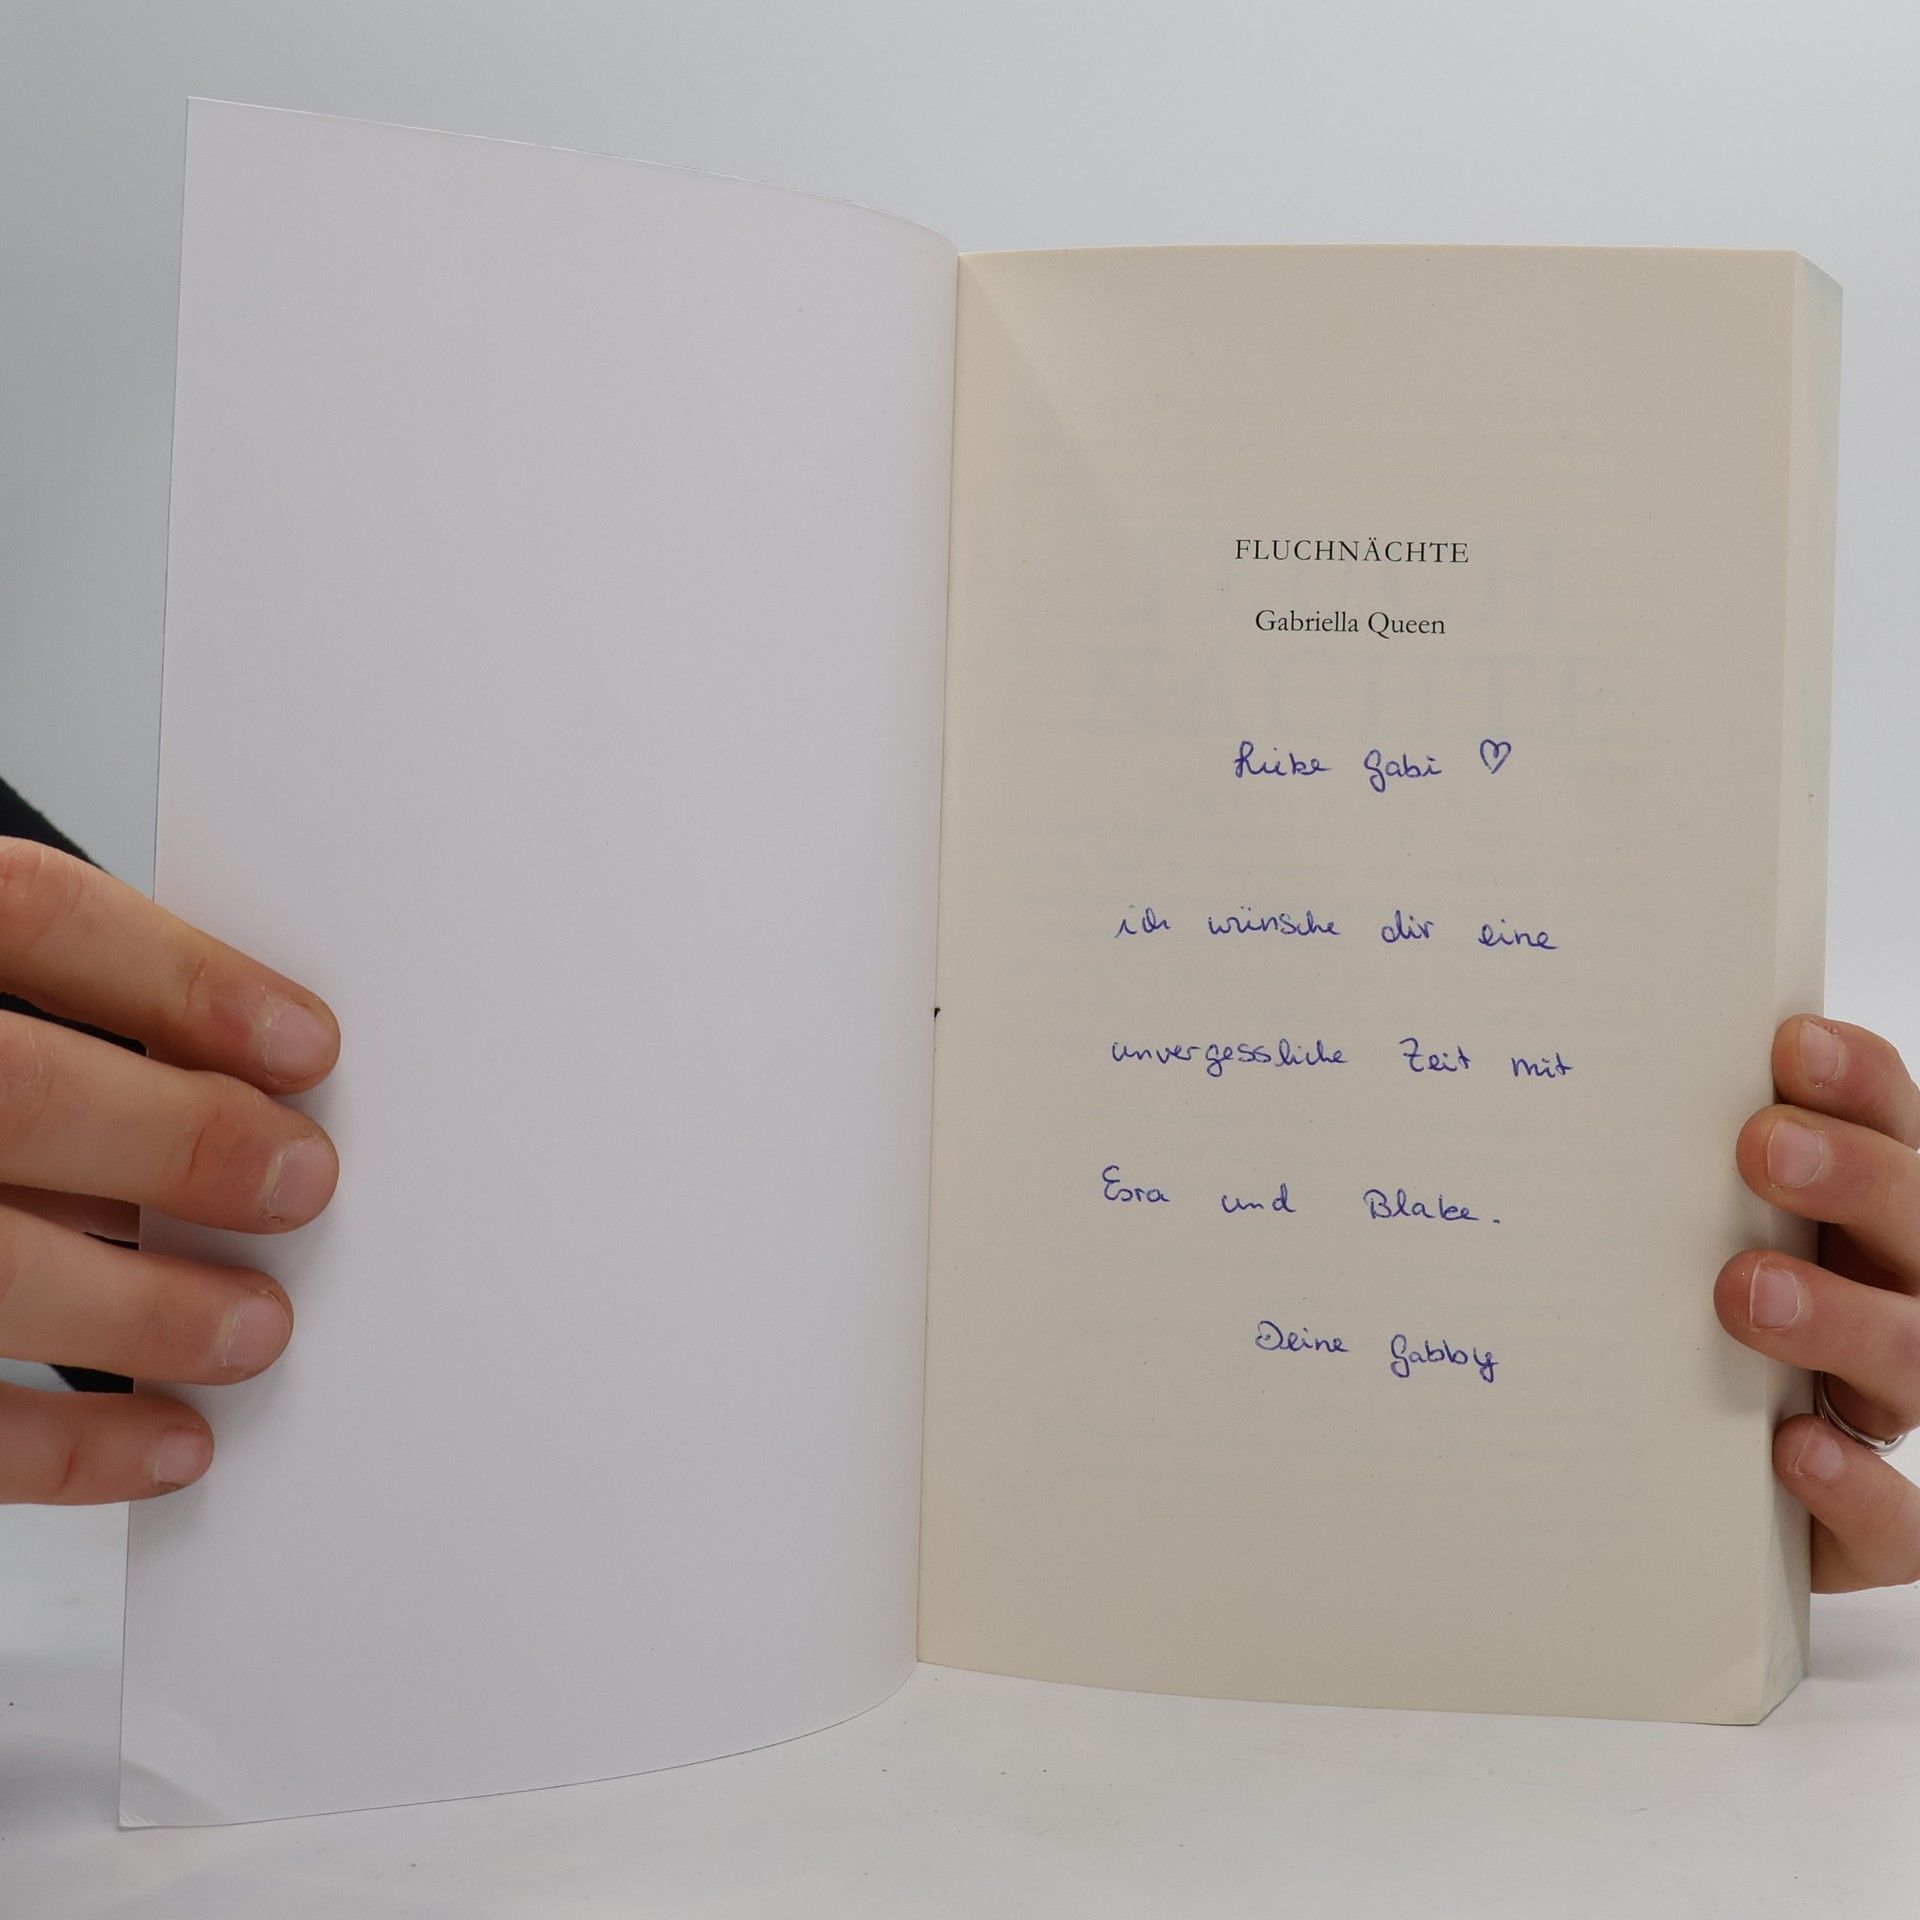 FLUCHNÄCHTE
Gabriella Queen
Liebe Gabi ♡
ich wünsche dir eine
unvergessliche Zeit mit
Esra und Blake.
Deine Gabby